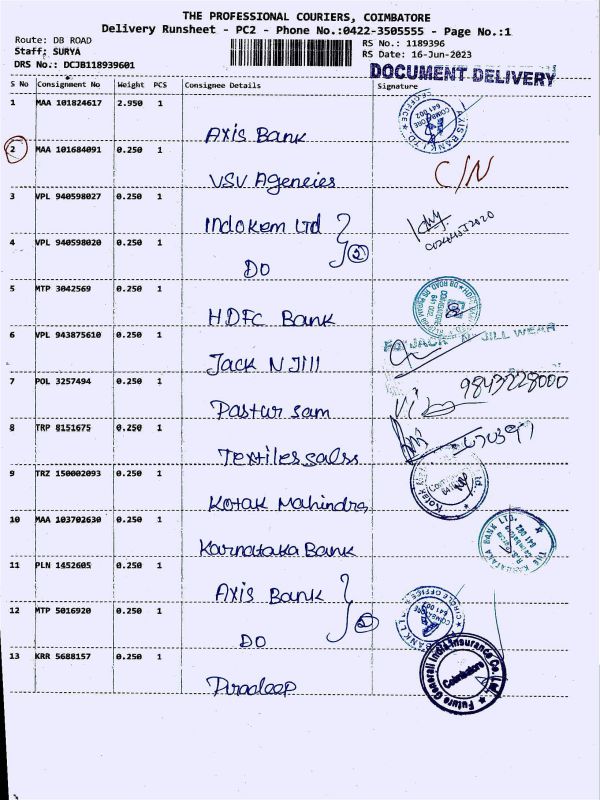 THE PROFESSIONAL COURIERS, COIMBATORE
Delivery Runsheet - PC2 - Phone No.:0422-3505555 - Page No.:1
Route: DB ROAD
RS No.: 1189396
Staff: SURYA
RS Date: 16-Jun-2023
DRS No.: DCJB118939601
DOCUMENT DELIVERY
S No Consignment No Weight PCS Consignee Details Signature
1 MAA 101824617 2.950 1
Axis Bank
2 MAA 101684091 0.250 1
VSV Ageneies C/N
3 VPL 940598027 0.250 1
Indokem Ltd
4 VPL 940598020 0.250 1
DO
5 MTP 3042569 0.250 1
HDFC Bank
6 VPL 943875610 0.250 1
FOR JACK N JILL WEAR
Jack N Jill
7 POL 3257494 0.250 1
9843228000
Pastur sam
8 TRP 8151675 0.250 1
Textiles
9 TRZ 150002093 0.250 1
Kotak Mahindra
10 MAA 103702630 0.250 1
THE KARNATAKA BANK LTD.
Karnataka Bank
11 PLN 1452605 0.250 1
Axis Bank
12 MTP 5016920 0.250 1
DO
13 KRR 5688157 0.250 1
Future Generali India Insurance Co. Ltd.
Coimbatore